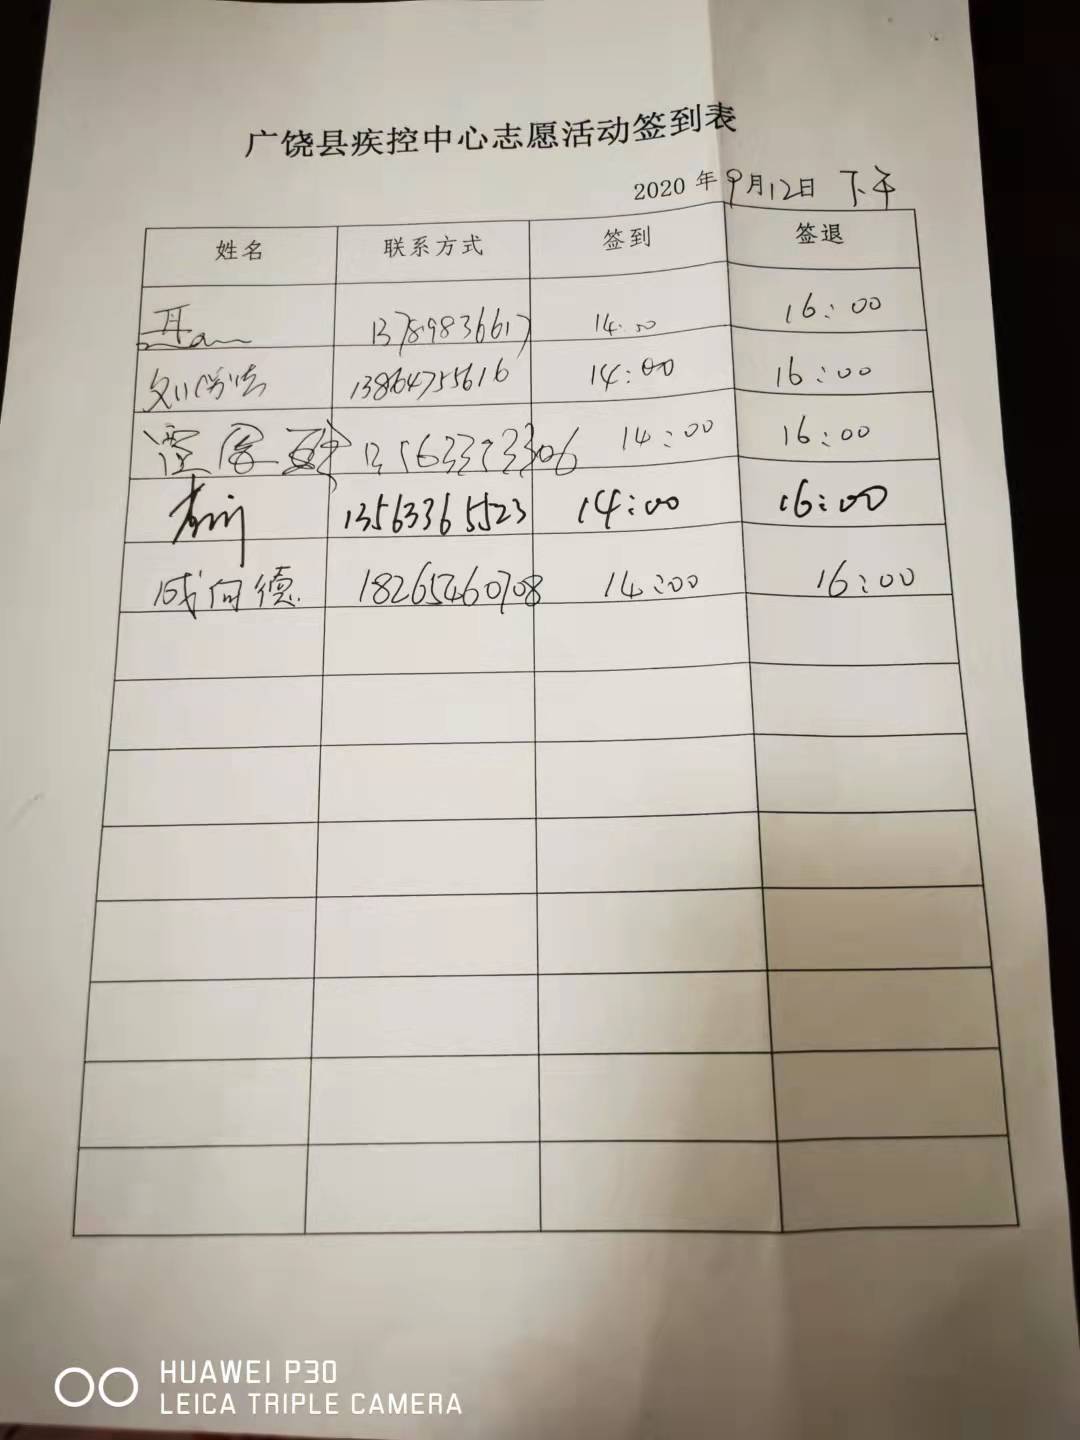 广饶县疾控中心志愿活动签到表
2020 年 9月12日 下午
姓名 联系方式 签到 签退
13789836617 14:00 16:00
13864755616 14:00 16:00
14:00 16:00
13563365523 14:00 16:00
成向德 18265460708 14:00 16:00
HUAWEI P30
LEICA TRIPLE CAMERA